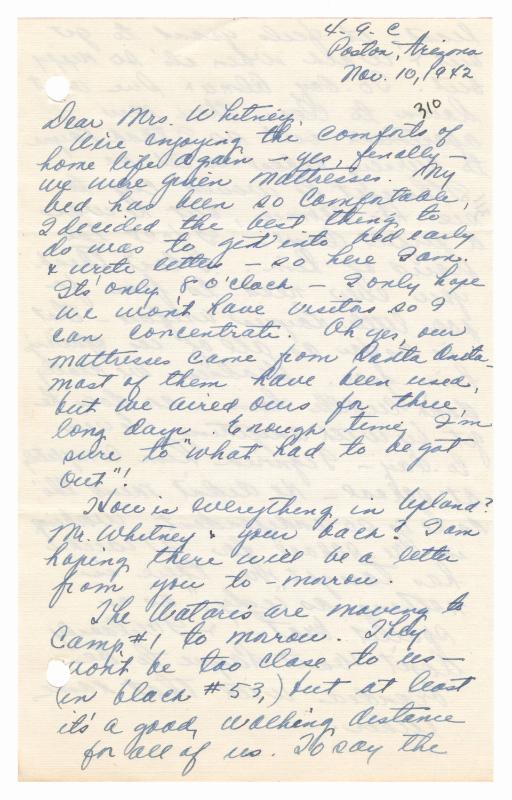 4-9-C
Poston, Arizona
Nov. 10, 1942
310
Dear Mrs. Whitney,
We're enjoying the comforts of
home life again - yes, finally -
we were given mattresses. My
bed has been so comfortable,
I decided the best thing to
do was to get into bed early
& write letters - so here I am.
It's only 8 o'clock - I only hope
we won't have visitors so I
can concentrate. Oh yes, our
mattresses came from Santa Anita -
most of them have been used,
but we aired ours for three,
long days. Enough time, I'm
sure to "what had to be got
out"!
How is everything in Upland?
Mr. Whitney & your back? I am
hoping there will be a letter
from you to-morrow.
The Wataris are moving to
Camp #1 to morrow. They
won't be too close to us -
(in block #53,) but at least
it's a good, walking distance
for all of us. To say the